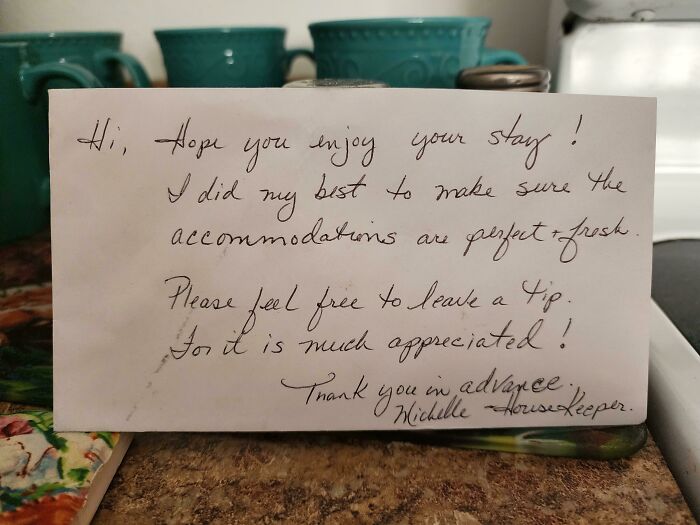 Hi, Hope you enjoy your stay!
I did my best to make sure the
accommodations are perfect + fresh.
Please feel free to leave a tip.
For it is much appreciated!
Thank you in advance.
Michelle HouseKeeper.